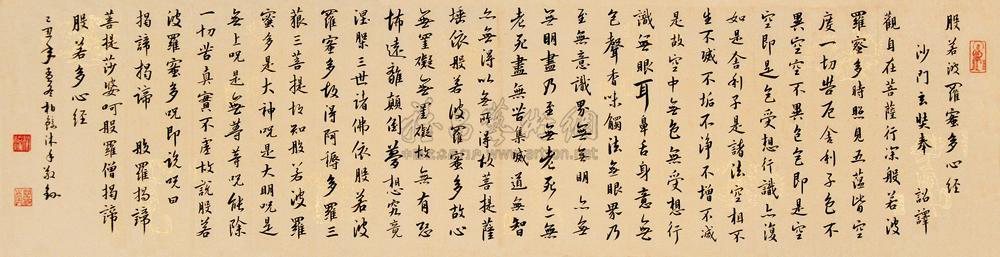 般若波羅蜜多心經
沙門玄奘奉 詔譯
觀自在菩薩行深般若波
羅蜜多時照見五蕴皆空
度一切苦厄舍利子色不
異空空不異色色即是空
空即是色受想行識亦復
如是舍利子是諸法空相不
生不滅不垢不淨不增不減
是故空中無色無受想行
識無眼耳鼻舌身意無
色聲香味觸法無眼界乃
至無意識界無無明亦無
無明盡乃至無老死亦無
老死盡無苦集滅道無智
亦無得以無所得故菩提薩
埵依般若波羅蜜多故心
無罣礙無罣礙故無有恐
怖遠離顛倒夢想究竟
涅槃三世諸佛依般若波
羅蜜多故得阿耨多羅三
藐三菩提故知般若波羅
蜜多是大神咒是大明咒是
無上咒是無等等咒能除
一切苦真實不虛故說般若
波羅蜜多咒即說咒曰
揭諦揭諦 般羅揭諦
菩提莎婆呵般羅僧揭諦
般若多心經
沐手敬